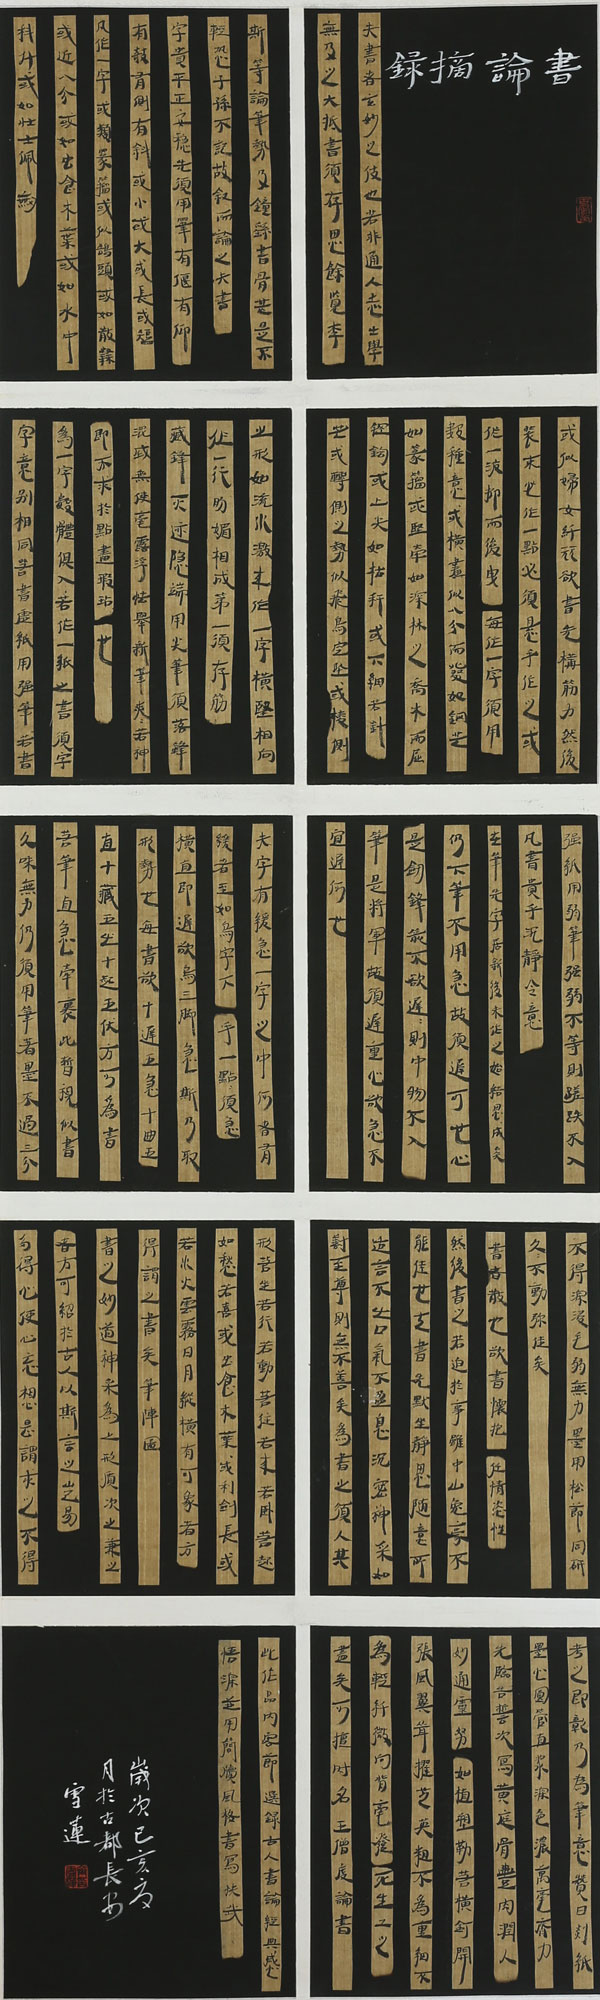 書論摘錄
夫書者玄妙之伎也若非通人志士學
無及之大抵書須存思余覽李
斯等論筆勢及鍾繇書骨甚是不
輕恐子孫不記故敘而論之夫書
字貴平正安穩先須用筆有偃有仰
有攲有側有斜或小或大或長或短
凡作一字或類篆籀或似鵠頭或如散隸
或近八分或如虫食木葉或如水中
科斗或如壯士佩劍
或似婦女纤麗欲書先構筋力然後
裝束必作一點必須懸手作之或
作一波抑而後曳 每作一字須用
數種意或橫畫似八分而發如
如篆籀或竖牽如深林之喬木而屈
鋼鉤或上尖如枯秆或下細若針
芒或轉側之勢似飛鳥空墜或棱側
之形如流水激來作一字橫竪相向
作一行明媚相成第一須存筋
藏鋒灭迹隐端用尖筆須落鋒
混成無使毫露浮怯舉新筆爽若神
即不求於點畫瑕玷 也
為一字數體俱入若作一紙之書須字
字意別相同若書虛紙用強筆若書
強紙用弱筆強弱不等則蹉跌不入
凡書貴乎沉静令意
在筆先字居新後未作之始結思成矣
仍下筆不用急故須遲可也心
是劍鋒箭不欲遲則中物不入
筆是將軍故須遲重心欲急不
宜遲何也
夫字有緩急一字之中何者有
緩者至如烏字下 手一點須急
橫直即遲欲烏三脚急斯乃取
形勢也每書欲十遲五急十曲五
直十藏五出十起五伏方可為書
若筆直急牽裹此暫視似書
久味無力仍須用筆著墨不過三分
不得深浸毛弱無力墨用松節同研
久久不動弥佳矣
書者散也欲書懷抱 任情恣性
然後書之若迫於事雖中山兔毫不
能佳也夫書先默坐靜思随意所
适言不出口氣不盈息沉密神采如
對至尊則無不善矣為書之須人其
形若坐若行若動若往若來若卧若起
如愁若喜或虫食木葉或利劍長戈
若水火雲霧日月縱橫有可象者方
得謂之書矣筆陣圖
書之妙道神采為上形質次之兼之
者方可紹於古人以斯言之豈易
多得心使心忘想是謂求之不得
考之即彰乃為筆意贊曰剡紙
墨心圓管直漿深色濃萬毫齊力
先臨告誓次寫黃庭骨豐肉潤人
妙通靈努 如植槊勒若橫釘開
張鳳翼聳擢芝英粗不為重細不
為輕纤微向背毫發死生工之
盡矣可擅時名王僧虔論書
此作品内容節選錄古人書論經典感
悟深並用简牘風格書寫
歲次己亥夏
月於古都長安
雪蓮